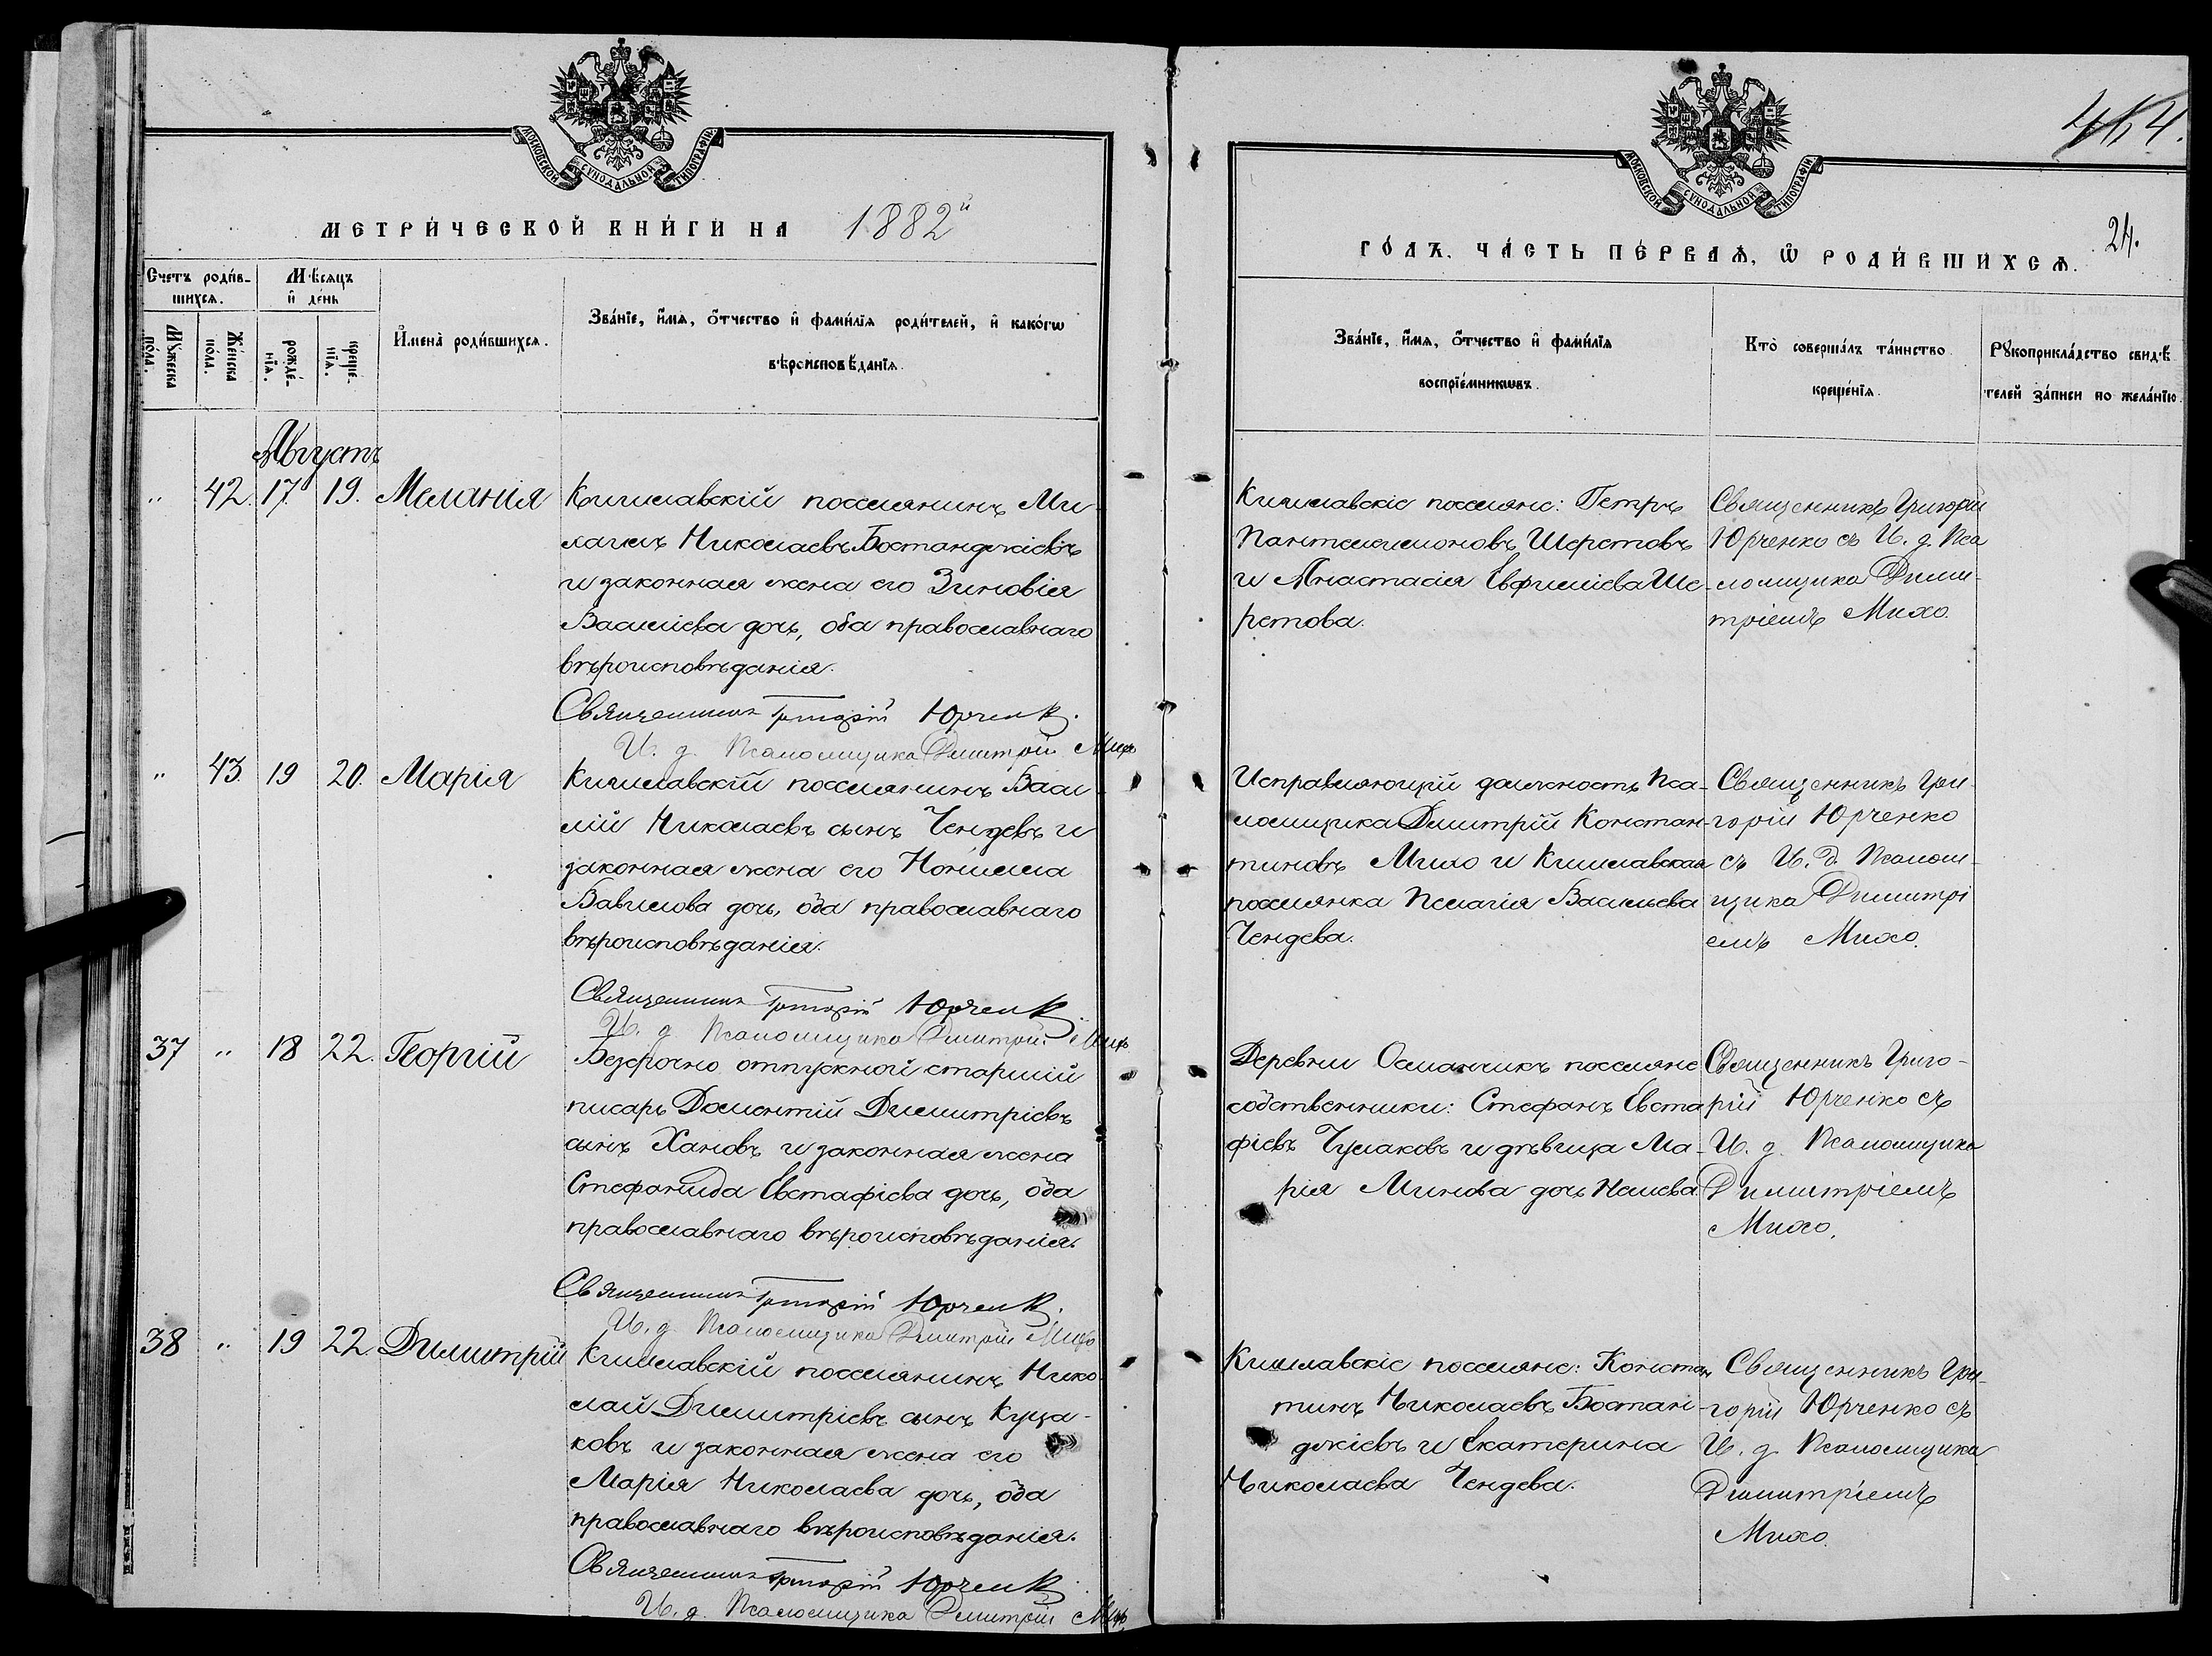 МОСКОВСКОЙ СѴНОДАЛЬНОЙ ТИПОГРАФІИ
МЕТРИ́ЧЕСКОЙ КНИ́ГИ НА 1882й
Счетъ роди́вшихся.
Мѣ́сяцъ и҆ де́нь
Му́жеска по́ла.
Же́нска по́ла.
рожде́нїѧ.
креще́нїѧ.
И҆мена̀ роди́вшихсѧ.
Зва́нїе, и҆́мѧ, ѻ҆́тчество и҆ фами́лїѧ роди́телей, и҆ како́гѡ
вѣроисповѣ́данїѧ.
Августъ
" 42. 17 19. Меланія
Кишлавскій поселянинъ Ми-
хаилъ Николаевъ Бостанджіевъ
и законная жена его Зиновія
Василіева дочь, оба православнаго
вѣроисповѣданія.
Священникъ Григорій Юрченко.
И. д. Псаломщика Дмитрій Михо
" 43. 19 20. Марія
Кишлавскій поселянинъ Васи-
лій Николаевъ сынъ Чендевъ и
законная жена его
Вавилова дочь, оба православнаго
вѣроисповѣданія.
Священникъ Григорій Юрченко
И. д. Псаломщика Дмитрій Михо
37 " 18 22. Георгій
Безсрочно отпускной старшій
писарь Дометій Димитріевъ
сынъ Хановъ и законная жена
Стефанида Евстафіева дочь, оба
православнаго вѣроисповѣданія.
Священникъ Григорій Юрченко.
И. д. Псаломщика Дмитрій Михо
38 " 19 22. Димитрій
Кишлавскій поселянинъ Нико-
лай Димитріевъ сынъ Куца-
ковъ и законная жена его
Марія Николаева дочь, оба
православнаго вѣроисповѣданія.
Священникъ Григорій Юрченко
И. д. Псаломщика Дмитрій Михо
МОСКОВСКОЙ СѴНОДАЛЬНОЙ ТИПОГРАФІИ
24.
ГО́ДЪ. ЧА́СТЬ ПЕ́РВАѦ, Ѡ҆ РОДИ́ВШИХСѦ.
Зва́нїе, и҆́мѧ, ѻ҆́тчество и҆ фами́лїѧ
воспрїе́мникѡвъ.
Кто̀ соверша́лъ та́инство
креще́нїѧ.
Рꙋкоприкла́дство свидѣ́
телей за́писи по жела́нїю.
Кишлавскіе поселяне: Петръ
Пантелеимоновъ Шеретовъ
и Анастасія Евфиміева Ше-
ретова.
Священникъ Григорій
Юрченко съ И. д. Пса
ломщика Дими-
тріемъ Михо.
Исправляющій должность Пса-
ломщика Дмитрій Констан-
тиновъ Михо и Кишлавская
поселянка Пелагія Васильева
Чендева.
Священникъ Гри-
горій Юрченко
съ И. д. Псалом-
щика Димитрі
емъ Михо.
Деревни Османчикъ поселяне
собственники: Стефанъ Евста
фіевъ Чумаковъ и дѣвица Ма-
рія Минова дочь
Священникъ Григо-
рій Юрченко съ
И. д. Псаломщика
Димитріемъ
Михо.
Кишлавскіе поселяне: Констан
тинъ Николаевъ Бостан-
джіевъ и Екатерина
Николаева Чендева.
Священникъ Гри-
горій Юрченко съ
И. д. Псаломщика
Димитріемъ
Михо.